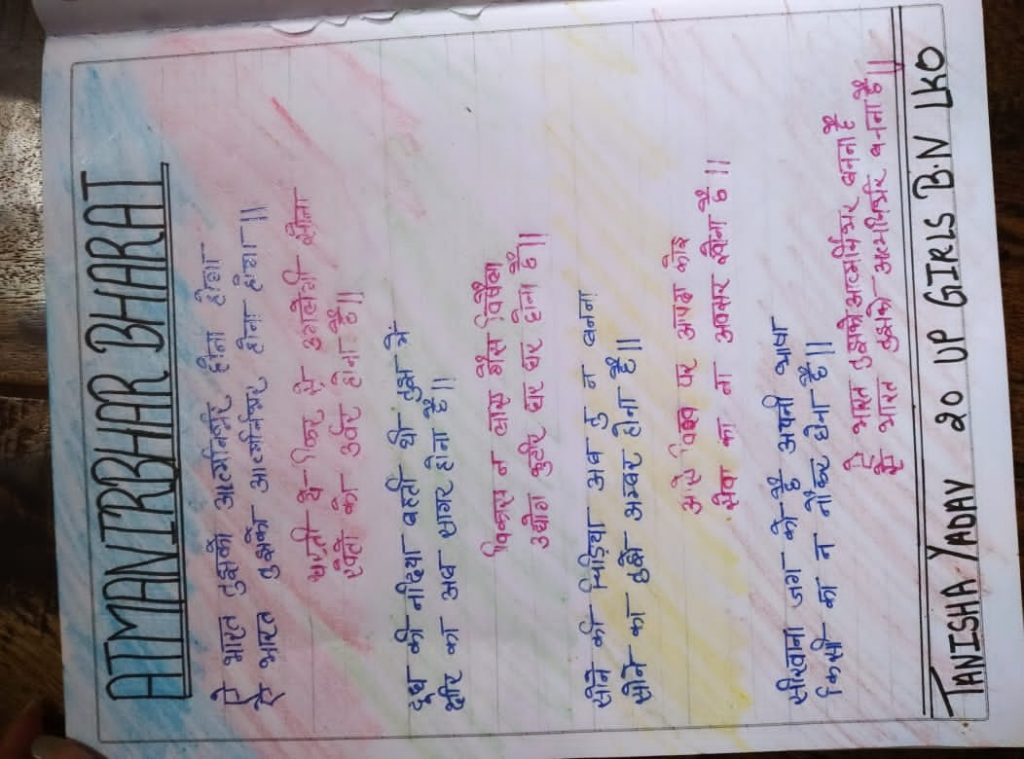 ATMANIRBHAR BHARAT
हे भारत तुझको आत्मनिर्भर होना होगा
हे भारत तुझको आत्मनिर्भर होना होगा ||
धरती ये फिर से उगलेगी सोना
खेतो को उर्वर होना है ||
दूध की नदिया बहती थी तुझ में
क्षीर का अब सागर होना है ||
विकास न लाए गैस विषैला
उद्योग कुटीर घर घर होना है ||
सोने की चिड़िया अब तु न बनना
सोने का तुझे अम्बर होना है ||
आये विश्व पर आपदा कोइ
सेवा का ना अवसर खोना है ||
सीखाना जग को है अपनी भाषा
किसी का न नौकर होना है ||
हे भारत तुझको आत्मनिर्भर बनना है
हे भारत तुझको आत्मनिर्भर बनना है ||
TANISHA YADAV 20 UP GIRLS B.N LKO